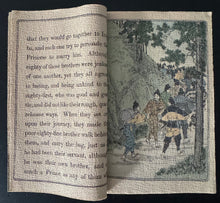 that they would go together to In-
ba, and each one try to persuade the
Princess to marry him. Although
eighty of these brothers were jealous
of one another, yet they all agreed
in hating, and being unkind to the
eighty-first, who was good and gen-
tle, and did not like their rough, quar-
relsome ways. When they set out
upon their journey, they made the
poor eighty-first brother walk behind
them, and carry the bag, just as if
he had been their servant, although
he was their own brother, and as
much a Prince as any of them